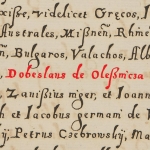 oxisse, videlicet Grecos, I
Australes, Misnen, Rhen
n, Bulgaros, Valachos, Alb
Dobeslaus de Oleßnicia
, Zanißius niger, et Ioann
h et Iacobus german de V
ij, Petrus Csebrovskij, Ma